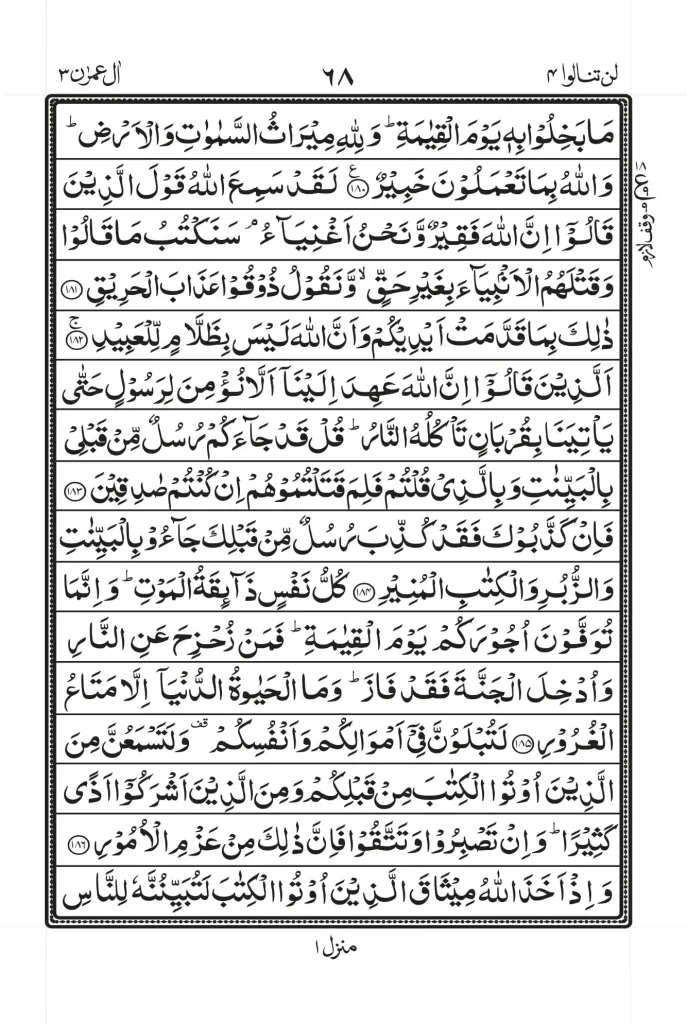 لن تنالوا ۴
۶۸
اٰل عمرٰن ۳
مَا بَخِلُوْا بِهٖ يَوْمَ الْقِيٰمَةِ ؕ وَ لِلّٰهِ مِيْرَاثُ السَّمٰوٰتِ وَ الْاَرْضِ ؕ
وَ اللّٰهُ بِمَا تَعْمَلُوْنَ خَبِيْرٌ ﴿۱۸۰﴾ ع لَقَدْ سَمِعَ اللّٰهُ قَوْلَ الَّذِيْنَ
قَالُوْۤا اِنَّ اللّٰهَ فَقِيْرٌ وَّ نَحْنُ اَغْنِيَآءُ ۘ سَنَكْتُبُ مَا قَالُوْا
وقف لازم
وَ قَتْلَهُمُ الْاَنْۢبِيَآءَ بِغَيْرِ حَقٍّ ۙ وَّ نَقُوْلُ ذُوْقُوْا عَذَابَ الْحَرِيْقِ ﴿۱۸۱﴾
ذٰلِكَ بِمَا قَدَّمَتْ اَيْدِيْكُمْ وَ اَنَّ اللّٰهَ لَيْسَ بِظَلَّامٍ لِّلْعَبِيْدِ ۚ﴿۱۸۲﴾
اَلَّذِيْنَ قَالُوْۤا اِنَّ اللّٰهَ عَهِدَ اِلَيْنَاۤ اَلَّا نُؤْمِنَ لِرَسُوْلٍ حَتّٰى
يَاْتِيَنَا بِقُرْبَانٍ تَاْكُلُهُ النَّارُ ؕ قُلْ قَدْ جَآءَكُمْ رُسُلٌ مِّنْ قَبْلِيْ
بِالْبَيِّنٰتِ وَ بِالَّذِيْ قُلْتُمْ فَلِمَ قَتَلْتُمُوْهُمْ اِنْ كُنْتُمْ صٰدِقِيْنَ ﴿۱۸۳﴾
فَاِنْ كَذَّبُوْكَ فَقَدْ كُذِّبَ رُسُلٌ مِّنْ قَبْلِكَ جَآءُوْ بِالْبَيِّنٰتِ
وَ الزُّبُرِ وَ الْكِتٰبِ الْمُنِيْرِ ﴿۱۸۴﴾ كُلُّ نَفْسٍ ذَآىِٕقَةُ الْمَوْتِ ؕ وَ اِنَّمَا
تُوَفَّوْنَ اُجُوْرَكُمْ يَوْمَ الْقِيٰمَةِ ؕ فَمَنْ زُحْزِحَ عَنِ النَّارِ
وَ اُدْخِلَ الْجَنَّةَ فَقَدْ فَازَ ؕ وَ مَا الْحَيٰوةُ الدُّنْيَاۤ اِلَّا مَتَاعُ
الْغُرُوْرِ ﴿۱۸۵﴾ لَتُبْلَوُنَّ فِيْۤ اَمْوَالِكُمْ وَ اَنْفُسِكُمْ قف وَ لَتَسْمَعُنَّ مِنَ
الَّذِيْنَ اُوْتُوا الْكِتٰبَ مِنْ قَبْلِكُمْ وَ مِنَ الَّذِيْنَ اَشْرَكُوْۤا اَذًى
كَثِيْرًا ؕ وَ اِنْ تَصْبِرُوْا وَ تَتَّقُوْا فَاِنَّ ذٰلِكَ مِنْ عَزْمِ الْاُمُوْرِ ﴿۱۸۶﴾
وَ اِذْ اَخَذَ اللّٰهُ مِيْثَاقَ الَّذِيْنَ اُوْتُوا الْكِتٰبَ لَتُبَيِّنُنَّهٗ لِلنَّاسِ
منزل ۱